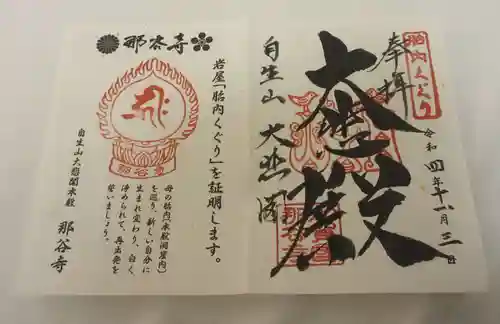 胎内くぐり
奉拝
令和四年十一月三日
大悲殿
自生山 大悲閣
那谷寺
岩屋「胎内くぐり」を証明します。
母の胎内(本殿洞窟内)
を巡り、新しい自分に
生まれ変わり、白く
浄められて、再出発を
誓いましょう。
自生山大悲閣本殿 那谷寺